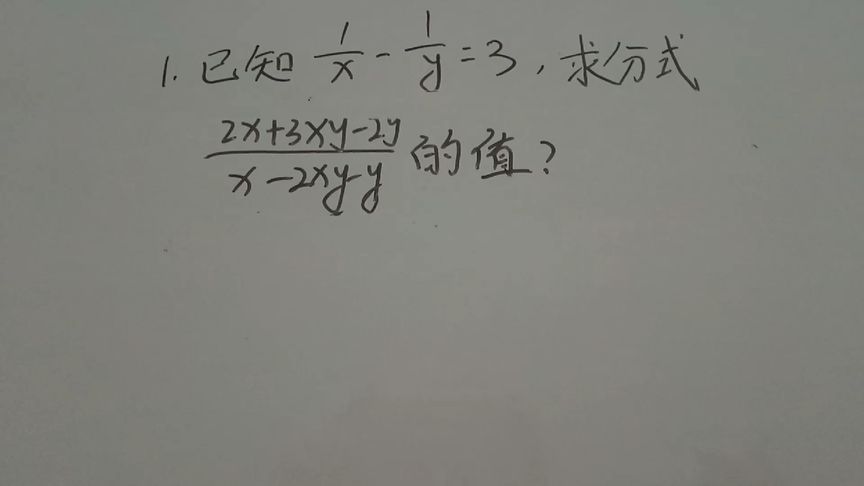 1. 已知 1/x - 1/y = 3, 求分式
(2x+3xy-2y)/(x-2xy-y) 的值?